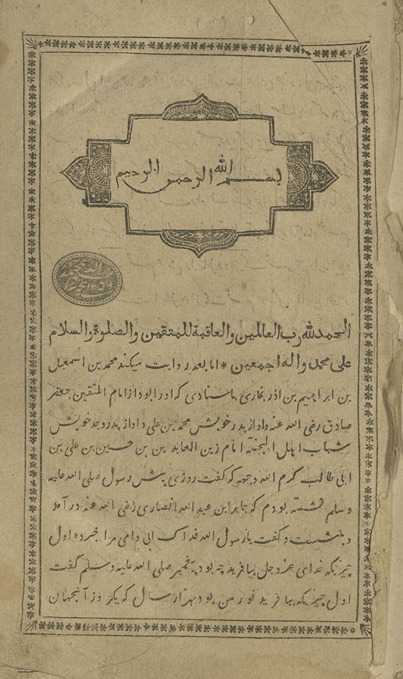 بسم الله الرحمن الرحيم
الحمد لله رب العالمين والعاقبة للمتقين والصلوة والسلام
على محمد واله اجمعين * اما بعد روایت میکند محمد بن اسمعیل
بن ابراهیم بن اذر بخاری باسنادی که او را بود از امام المتقین جعفر
صادق رضی الله عنه و او از پدر خویش محمد بن علی و او از پدر و جد خویش
شباب اهل الجنة امام زین العابدین بن حسین بن علی بن
ابی طالب کرم الله وجهه که گفت روزی پیش رسول صلی الله علیه
وسلم نشسته بودم که جابر ابن عبد الله انصاری رضی الله عنه در آمد
و بنشست و گفت یا رسول الله فداک ابی و امی مرا خبر ده اول
چیزیکه خدای عز و جل بیافرید چه بود پیغمبر صلی الله علیه وسلم گفت
اول چیزیکه بیافرید نور من بود بهزار سال که یکروز آنجهان